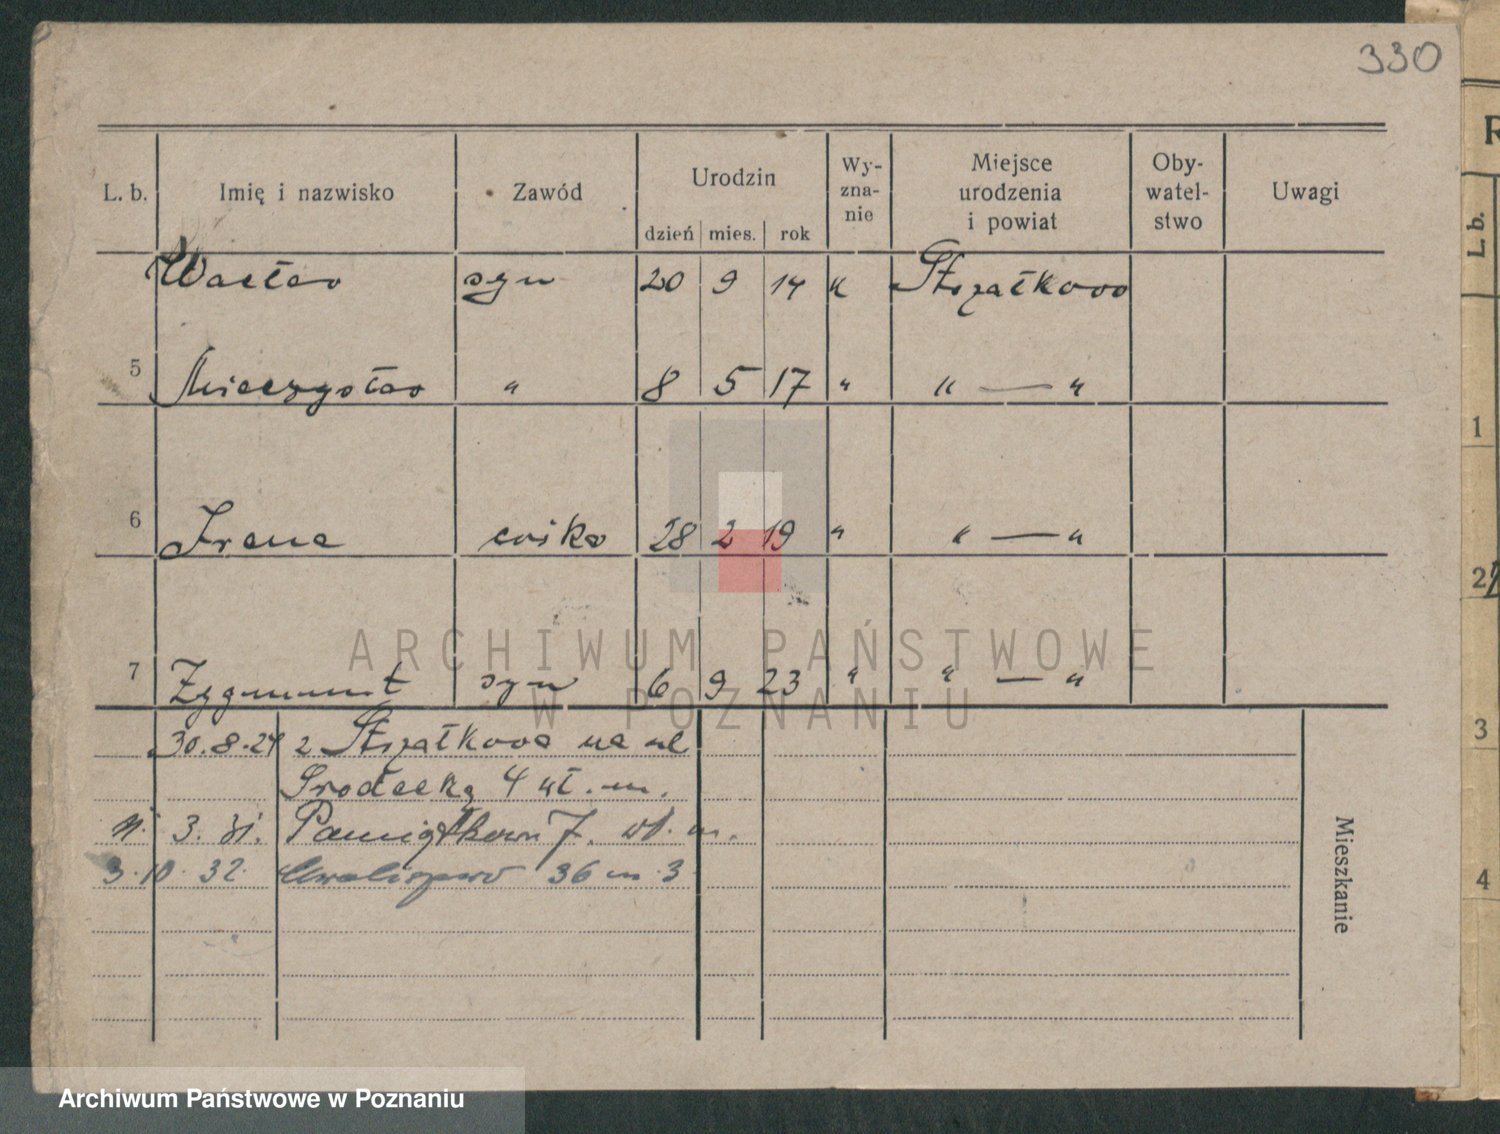 330
L. b. Imię i nazwisko Zawód Urodzin dzień mies. rok Wy-zna-nie Miejsce urodzenia i powiat Oby-watel-stwo Uwagi
Wacław syn 20 9 14 k Strzałkowo
5 Mieczysław " 8 5 17 " " — "
6 Irena córka 28 2 19 " " — "
7 Zygmunt syn 6 9 23 " " — "
ARCHIWUM PAŃSTWOWE
W POZNANIU
30.8.24 z Strzałkowa na ul
Srodecką 4 wł. m.
3. 31. 7. wł. m.
3.10.32. 36 m 3
Mieszkanie
R
L. b.
1
2
3
4
Archiwum Państwowe w Poznaniu